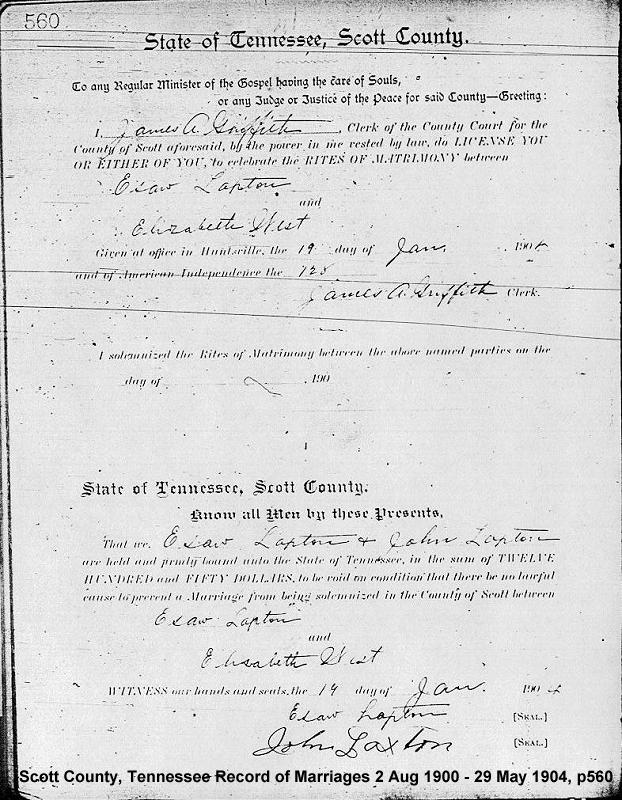 560
State of Tennessee, Scott County.
To any Regular Minister of the Gospel having the care of Souls,
or any Judge or Justice of the Peace for said County—Greeting:
I, James A. Griffith, Clerk of the County Court for the
County of Scott aforesaid, by the power in me vested by law, do LICENSE YOU
OR EITHER OF YOU, to celebrate the RITES OF MATRIMONY between
Esaw Laxton
and
Elizabeth West
Given at office in Huntsville, the 19 day of Jan. 1904
and of American Independence the 128
James A. Griffith Clerk.
I solemnized the Rites of Matrimony between the above named parties on the
day of , 190
State of Tennessee, Scott County.
Know all Men by these Presents,
That we, Esaw Laxton & John Laxton
are held and firmly bound unto the State of Tennessee, in the sum of TWELVE
HUNDRED and FIFTY DOLLARS, to be void on condition that there be no lawful
cause to prevent a Marriage from being solemnized in the County of Scott between
Esaw Laxton
and
Elisabeth West
WITNESS our hands and seals, the 19 day of Jan. 1904
Esaw Laxton [SEAL.]
John Laxton [SEAL.]
Scott County, Tennessee Record of Marriages 2 Aug 1900 - 29 May 1904, p560